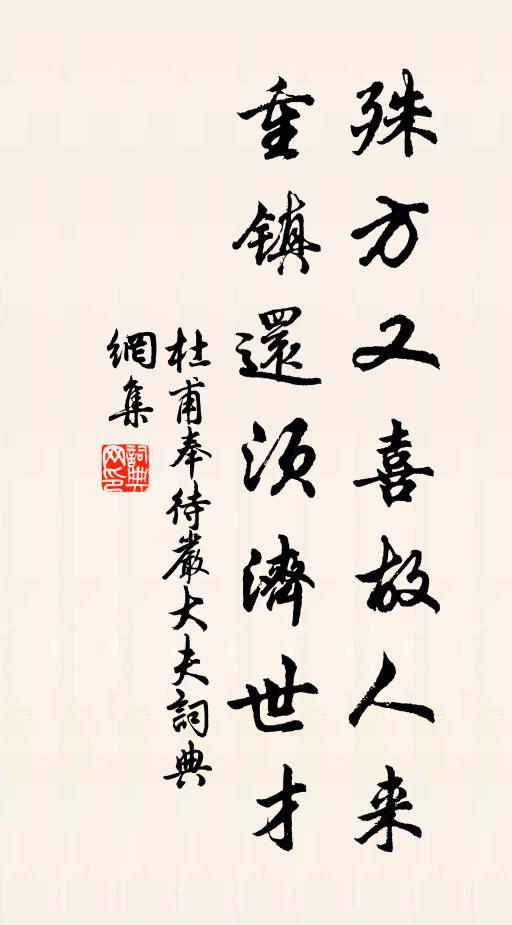 殊方又喜故人来
重镇還須濟世才
杜甫奉待嚴大夫詞典
網集
詞典
网印